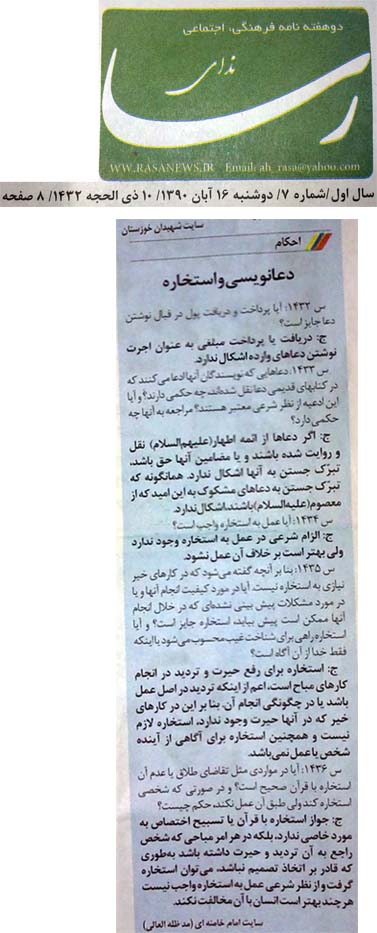 دوهفته نامه فرهنگی، اجتماعی
ندای
رسا
WWW.RASANEWS.IR Email:ah_rasa@yahoo.com
سال اول/شماره ۷/ دوشنبه ۱۶ آبان ۱۳۹۰/ ۱۰ ذی الحجه ۱۴۳۲/ ۸ صفحه
سایت شهیدان خوزستان
احکام
دعانویسی و استخاره
س ۱۴۳۲: آیا پرداخت و دریافت پول در قبال نوشتن
دعا جایز است؟
ج: دریافت یا پرداخت مبلغی به عنوان اجرت
نوشتن دعاهای وارده اشکال ندارد.
س ۱۴۳۳: دعاهایی که نویسندگان آنها ادعا می کنند که
در کتابهای قدیمی دعا نقل شده اند، چه حکمی دارند؟ و آیا
این ادعیه از نظر شرعی معتبر هستند؟ مراجعه به آنها چه
حکمی دارد؟
ج: اگر دعاها از ائمه اطهار(علیهم السلام) نقل
و روایت شده باشند و یا مضامین آنها حق باشد،
تبرّک جستن به آنها اشکال ندارد. همانگونه که
تبرّک جستن به دعاهای مشکوک به این امید که از
معصوم(علیه السلام) باشند، اشکال ندارد.
س ۱۴۳۴: آیا عمل به استخاره واجب است؟
ج: الزام شرعی در عمل به استخاره وجود ندارد
ولی بهتر است بر خلاف آن عمل نشود.
س ۱۴۳۵: بنا بر آنچه گفته می شود که در کارهای خیر
نیازی به استخاره نیست، آیا در مورد کیفیت انجام آنها و یا
در مورد مشکلات پیش بینی نشده ای که در خلال انجام
آنها ممکن است پیش بیاید، استخاره جایز است؟ و آیا
استخاره راهی برای شناخت غیب محسوب می شود یا اینکه
فقط خدا از آن آگاه است؟
ج: استخاره برای رفع حیرت و تردید در انجام
کارهای مباح است، اعم از اینکه تردید در اصل عمل
باشد یا در چگونگی انجام آن. بنا بر این در کارهای
خیر که در آنها حیرت وجود ندارد، استخاره لازم
نیست و همچنین استخاره برای آگاهی از آینده
شخص یا عمل نمی باشد.
س ۱۴۳۶: آیا در مواردی مثل تقاضای طلاق یا عدم آن
استخاره با قرآن صحیح است؟ و در صورتی که شخصی
استخاره کند ولی طبق آن عمل نکند، حکم چیست؟
ج: جواز استخاره با قرآن یا تسبیح اختصاص به
مورد خاصی ندارد، بلکه در هر امر مباحی که شخص
راجع به آن تردید و حیرت داشته باشد به طوری
که قادر بر اتخاذ تصمیم نباشد، می توان استخاره
گرفت و از نظر شرعی عمل به استخاره واجب نیست
هر چند بهتر است انسان با آن مخالفت نکند.
سایت امام خامنه ای (مد ظله العالی)